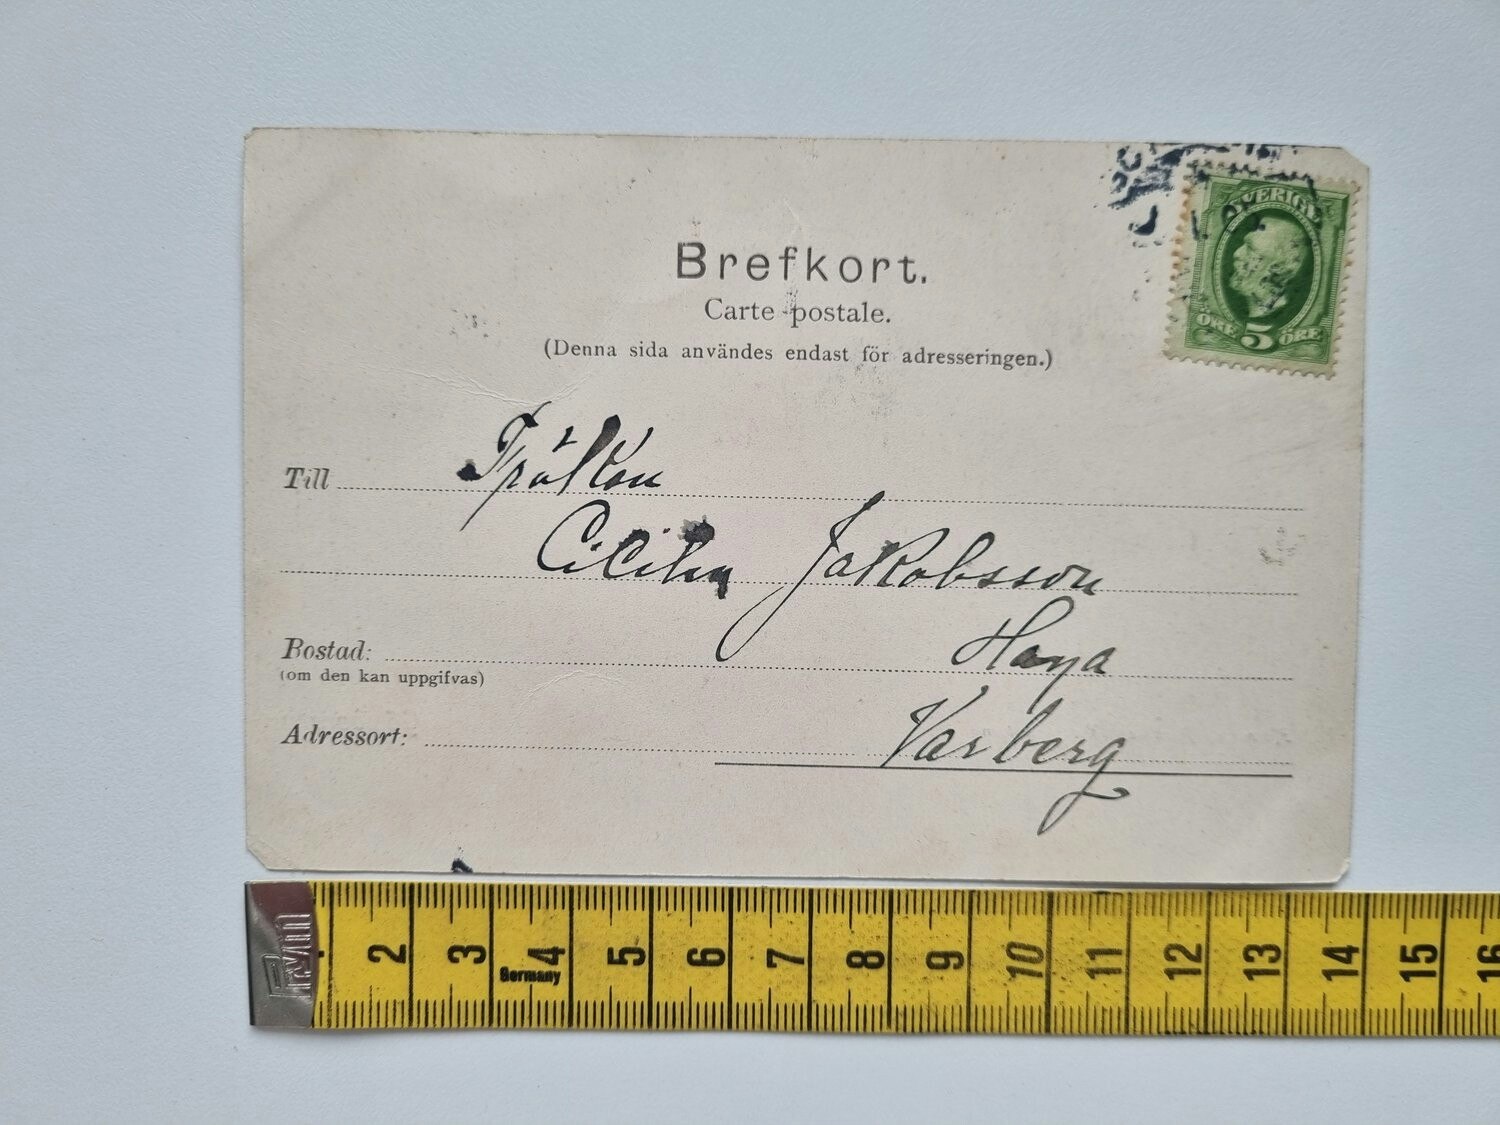 SVERIGE
ÖRE 5 ÖRE
Brefkort.
Carte postale.
(Denna sida användes endast för adresseringen.)
Till Fröken
Cicilia Jakobsson
Bostad: Haga
(om den kan uppgifvas)
Adressort: Varberg
Prym
Germany
2 3 4 5 6 7 8 9 10 11 12 13 14 15 16